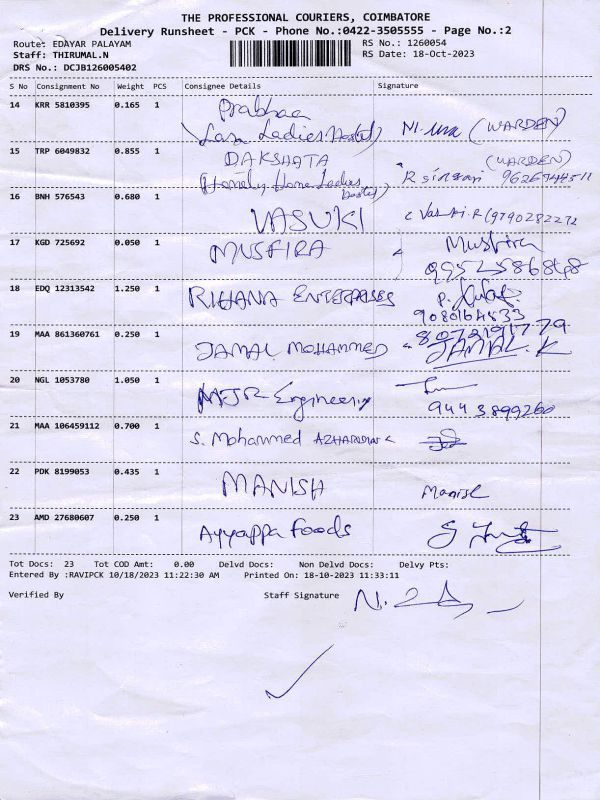 THE PROFESSIONAL COURIERS, COIMBATORE
Delivery Runsheet - PCK - Phone No.:0422-3505555 - Page No.:2
Route: EDAYAR PALAYAM RS No.: 1260054
Staff: THIRUMAL.N RS Date: 18-Oct-2023
DRS No.: DCJB126005402
S No Consignment No Weight PCS Consignee Details Signature
14 KRR 5810395 0.165 1 Prabhaa
Ladies Hostel) (WARDEN)
15 TRP 6049832 0.855 1 DAKSHATA (WARDEN)
Homely Home Ladies Hostel) 9626744511
16 BNH 576543 0.680 1 VASUKI R (9790282272
17 KGD 725692 0.050 1 MUSFIRA Musfira
9952586848
18 EDQ 12313542 1.250 1 RIHANA ENTERPRISES P.
9080164833
19 MAA 861360761 0.250 1 JAMAL MOHAMMED 8072191779
JAMAL.K
20 NGL 1053780 1.050 1 MJR Engineering
9443899260
21 MAA 106459112 0.700 1 S. Mohammed
22 PDK 8199053 0.435 1 MANISH Manish
23 AMD 27680607 0.250 1 Ayyappa Foods
Tot Docs: 23 Tot COD Amt: 0.00 Delvd Docs: Non Delvd Docs: Delvy Pts:
Entered By :RAVIPCK 10/18/2023 11:22:30 AM Printed On: 18-10-2023 11:33:11
Verified By Staff Signature